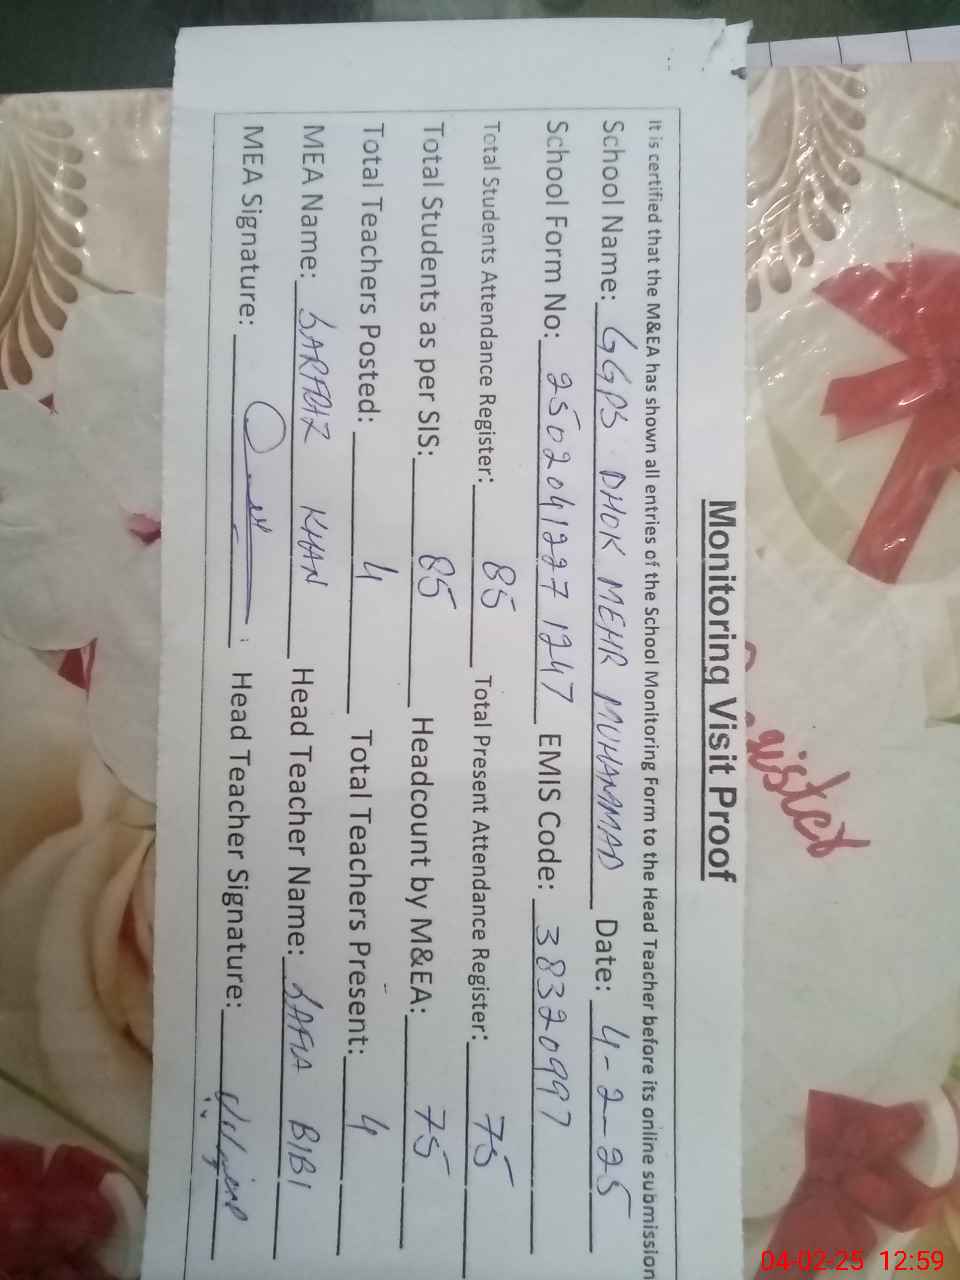 Monitoring Visit Proof
It is certified that the M&EA has shown all entries of the School Monitoring Form to the Head Teacher before its online submission
School Name: GGPS DHOK MEHR MUHAMMAD Date: 4-2-25
School Form No: 25020412271247 EMIS Code: 38320997
Total Students Attendance Register: 85 Total Present Attendance Register: 75
Total Students as per SIS: 85 Headcount by M&EA: 75
Total Teachers Posted: 4 Total Teachers Present: 4
MEA Name: SARFRAZ KHAN Head Teacher Name: SAFIA BIBI
MEA Signature: Head Teacher Signature:
04-02-25 12:59